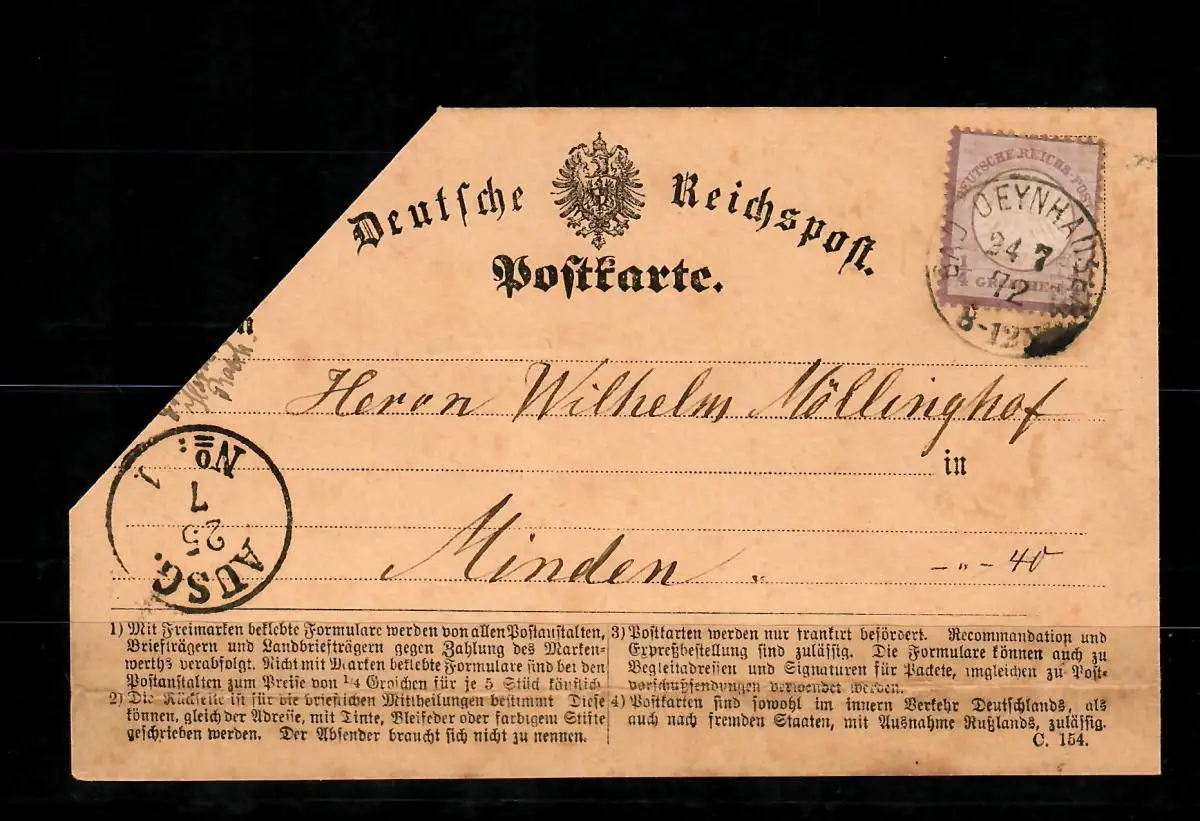 Deutsche Reichspost
Postkarte.
DEUTSCHE REICHS-POST
1/4 GROSCHEN
BAD OEYNHAUSEN
24 7
72
8-12
n
Herrn Wilhelm Möllinghof
in
Minden. -„- 40
AUSG.
25
7
No: 1
1) Mit Freimarken beklebte Formulare werden von allen Postanstalten,
Briefträgern und Landbriefträgern gegen Zahlung des Marken-
werths verabfolgt. Nicht mit Marken beklebte Formulare sind bei den
Postanstalten zum Preise von 1/4 Groschen für je 5 Stück käuflich
2) Die Rückseite ist für die brieflichen Mittheilungen bestimmt Diese
können, gleich der Adresse, mit Tinte, Bleifeder oder farbigem Stifte
geschrieben werden. Der Absender braucht sich nicht zu nennen.
3) Postkarten werden nur frankirt befördert. Recommandation und
Expreßbestellung sind zulässig. Die Formulare können auch zu
Begleitadressen und Signaturen für Packete, imgleichen zu Post-
vorschußsendungen verwendet werden.
4) Postkarten sind sowohl im innern Verkehr Deutschlands, als
auch nach fremden Staaten, mit Ausnahme Rußlands, zulässig.
C. 154.